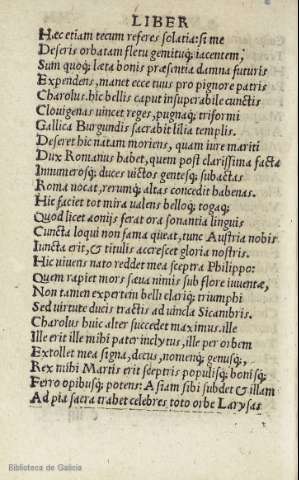 LIBER
Hæc etiam tecum referes solatia: si me
Deseris orbatam fletu gemituq; iacentem,
Sum quoq; læta bonis præsentia damna futuris
Expendens, manet ecce tuus pro pignore patris
Charolus. hic bellis caput insuperabile cunctis
Clouigenas uincet reges, pugnaq; triformi
Gallica Burgundis sacrabit lilia templis.
Deseret hic natam moriens, quam iure mariti
Dux Romanus habet, quem post clarissima facta
Innumerosq; duces uictos gentesq; subactas
Roma uocat, rerumq; altas concedit habenas.
Hic faciet tot mira ualens belloq; togaq;
Quod licet aonijs ferat ora sonantia linguis
Cuncta loqui non fama queat, tunc Austria nobis
Iuncta erit, & titulis accrescet gloria nostris.
Hic uiuens nato reddet mea sceptra Philippo:
Quem rapiet mors sæua nimis sub flore iuuentæ,
Non tamen expertem belli clariq; triumphi
Sed uirtute ducis tractis ad uincla Sicambris.
Charolus huic alter succedet maximus. ille
Ille erit ille mihi pater inclytus, ille per orbem
Extollet mea signa, decus, nomenq; genusq;,
Rex mihi Martis erit sceptris populisq; bonisq;
Ferro opibusq; potens: Asiam sibi subdet & illam
Ad pia sacra trahet celebres toto orbe Laryssas
Biblioteca de Galicia